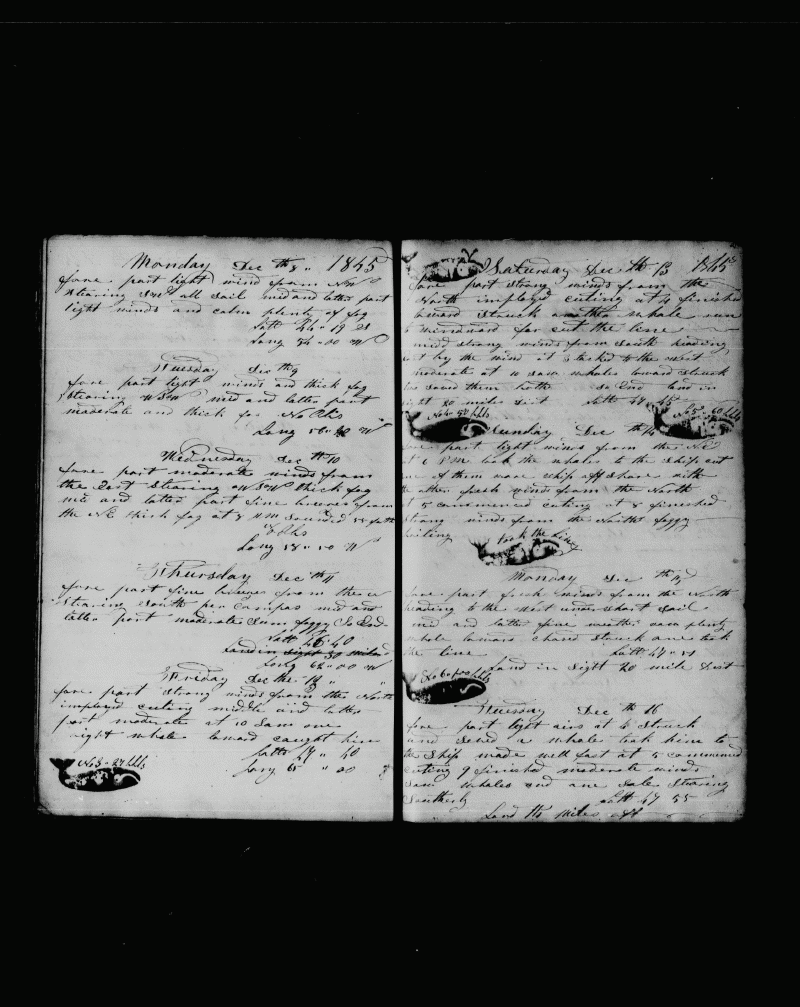 Monday Dec th 8 1845
fore part light wind from NW
Stearing SW all Sail mid and latter part
light winds and calm plenty of fog
Latt 46 - 19 28
Long 54 - 00 W
Tuesday Dec th 9
fore part light winds and thick fog
Stearing WSW mid and latter part
moderate and thick fog No Obs
Long 56 W
Wednesday Dec th 10
fore part moderate winds from
the Stearing WSW thick fog
mid and latter part fine breeses from
the NE thick fog at M Sounded 55 fath
No Obs
Long 58 " 10 W
Thursday Dec th 11
fore part fine breeses from the
Stearing South per Compas mid and
latter part moderate Sum foggy So End
Latt 46 40
Land in
Long 62 " 00 W
Friday Dec the 12
fore part Strong winds from the North
imployd cuting middle and latter
part moderate at 10 Saw one
right whale lowerd caught him
Latt 47 " 40
Long 6 " 00
No 3 - 27 bbls
Saturday Dec th 13 1845
fore part Strong winds from the
North imployd cuting at 4 finished
lowerd Struck another whale run
to windward far cut the line
midd strong winds from South heading
by the wind at tacked to the west
moderate at 10 Saw whales lowerd Struck
two Saved them both So End land in
sight 20 miles dist Latt 47 45
No 4 - 57 bbls No 5 - 60 bbls
Sunday Dec th 14
fore part light winds from the NE
at 6 PM took the whales to the Ship cut
one of them wore Ship off Shore with
the other fresh winds from the North
at 5 commenced cuting at 8 finished
strong winds from the North foggy
boiling
took the line
Monday Dec th 15
fore part fresh winds from the North
heading to the West under Short Sail
mid and latter fine weather Saw plenty
whale lowerd chased Struck one took
the line Latt 47 " 51
Land in Sight 20 mile Dist
No 6 - 100 bbls
Tuesday Dec th 16
fore part light airs at 4 Struck
and Saved a whale took him to
the Ship made well fast at 5 commenced
cuting 9 finished moderate winds
Saw whales and one Sale Stearing
Southerly Latt 47 55
Land miles off